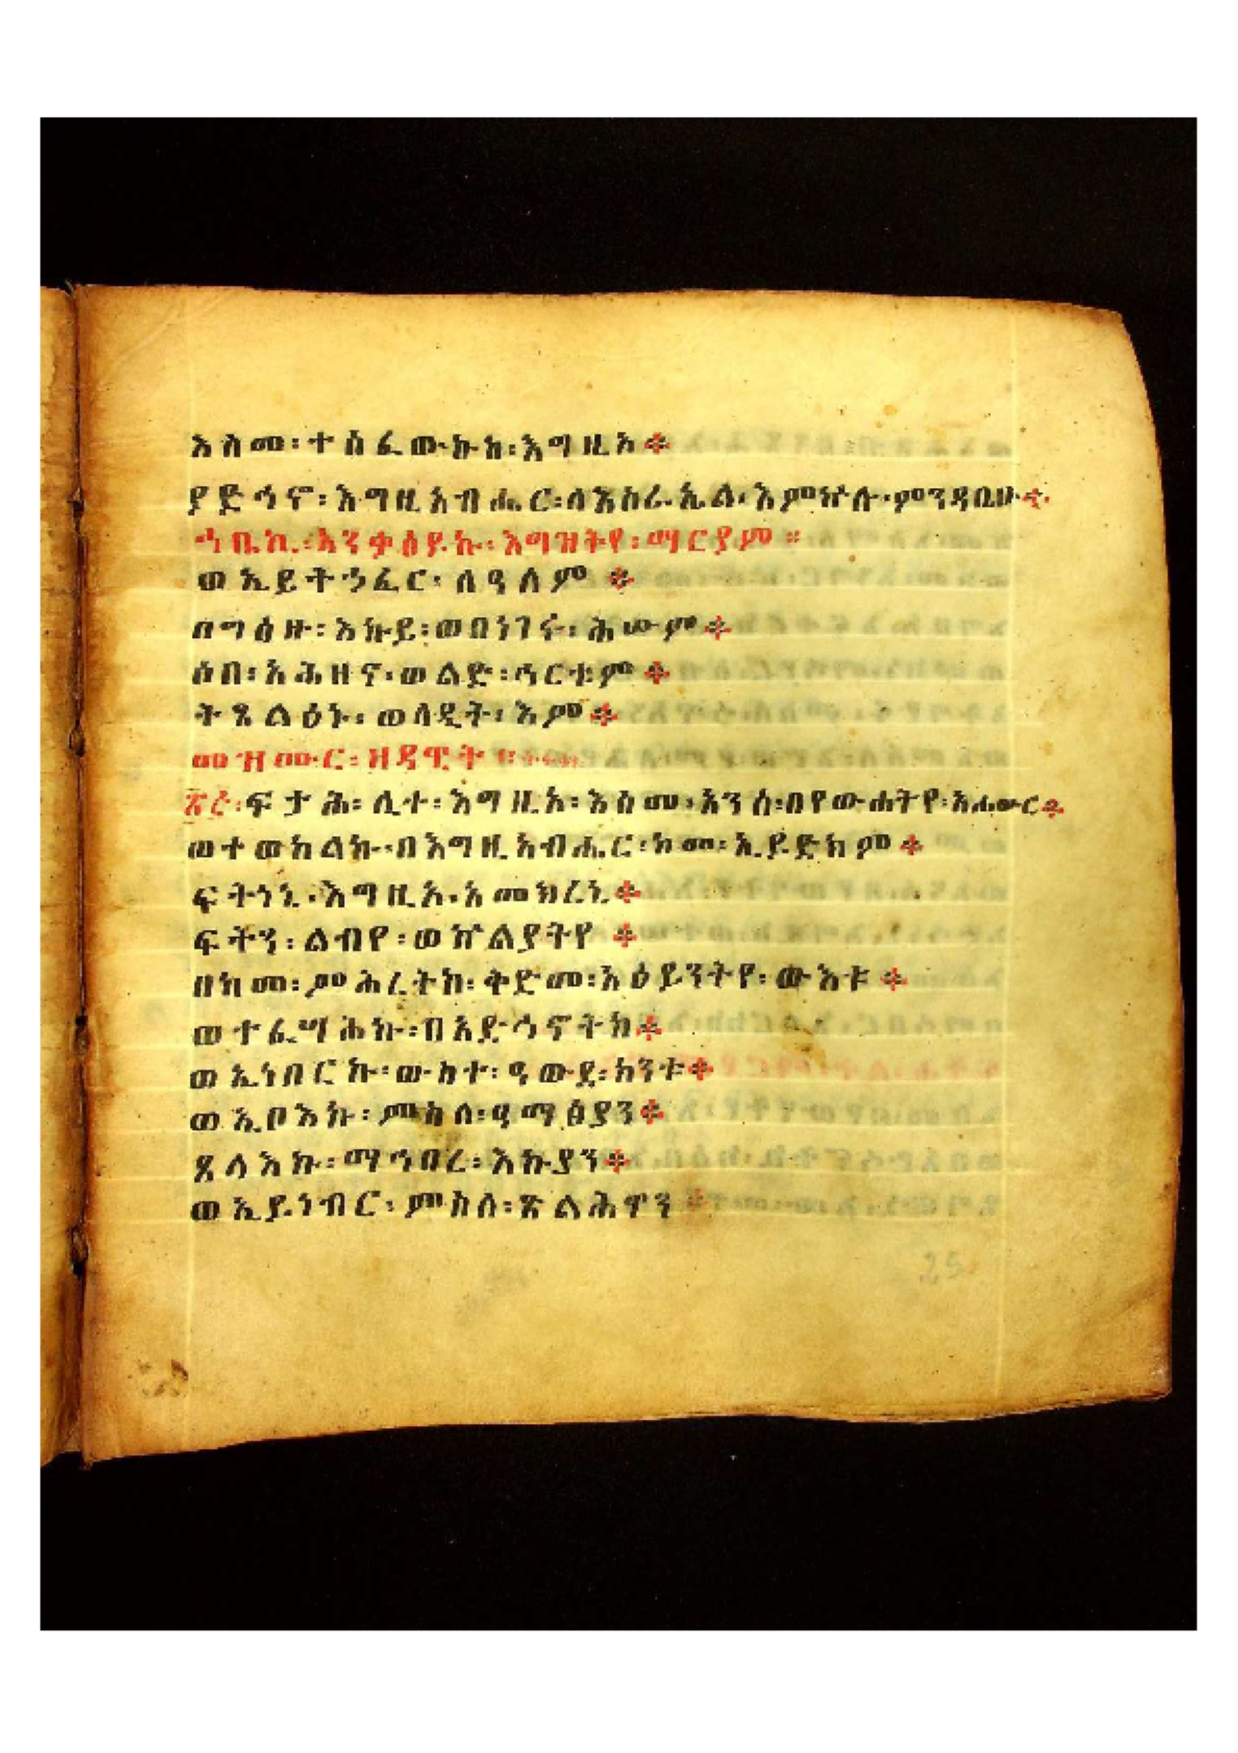 እስመ፡ተሰፈውኩከ፡እግዚአ፨
ያድኅኖ፡እግዚአብሔር፡ለእስራኤል፡እምኵሉ፡ምንዳቤሁ፨
ኀቤኪ፡አንቃዕዶኩ፡እግዝትየ፡ማርያም።
ወኢይትኃፈር፡ለዓለም፨
በግዕዙ፡እኩይ፡ወበነገሩ፡ሕሡም፨
ሶበ፡አሕዘኖ፡ወልድ፡ኅርቱም፨
ትጼልዕኑ፡ወላዲት፡እም፨
መዝሙር፡ዘዳዊት፡
፳፭፡ፍታሕ፡ሊተ፡እግዚአ፡እስመ፡አንሰ፡በየውሐትየ፡አሐውር፨
ወተወከልኩ፡በእግዚአብሔር፡ከመ፡ኢይድክም፨
ፍትነኒ፡እግዚአ፡አመክረኒ፨
ፍትን፡ልብየ፡ወኵልያትየ፨
ዘከመ፡ምሕረትከ፡ቅድመ፡አዕይንትየ፡ውእቱ፨
ወተፈሣሕኩ፡በአድኅኖትከ፨
ወኢነበርኩ፡ውስተ፡ዓውደ፡ከንቱ፨
ወኢቦእኩ፡ምስለ፡ዓማፅያን፨
ጸላእኩ፡ማኅበረ፡እኩያን፨
ወኢይነብር፡ምስለ፡ጽልሕዋን
25